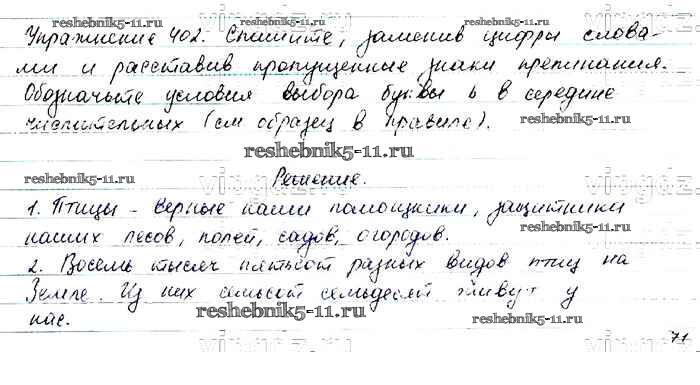 reshebnik5-11.ru
reshebnik5-11.ru
Упражнение 402. Спишите, заменив цифры слова-
ми и расставив пропущенные знаки препинания.
Обозначьте условия выбора буквы ь в середине
числительных (см образец в правиле).
reshebnik5-11.ru
Решение.
1. Птицы - верные наши помощники, защитники
наших лесов, полей, садов, огородов.
reshebnik5-11.ru
2. Восемь тысяч пятьсот разных видов птиц на
Земле. Из них семьсот семьдесят живут у
нас.
reshebnik5-11.ru
reshebnik5-11.ru
71